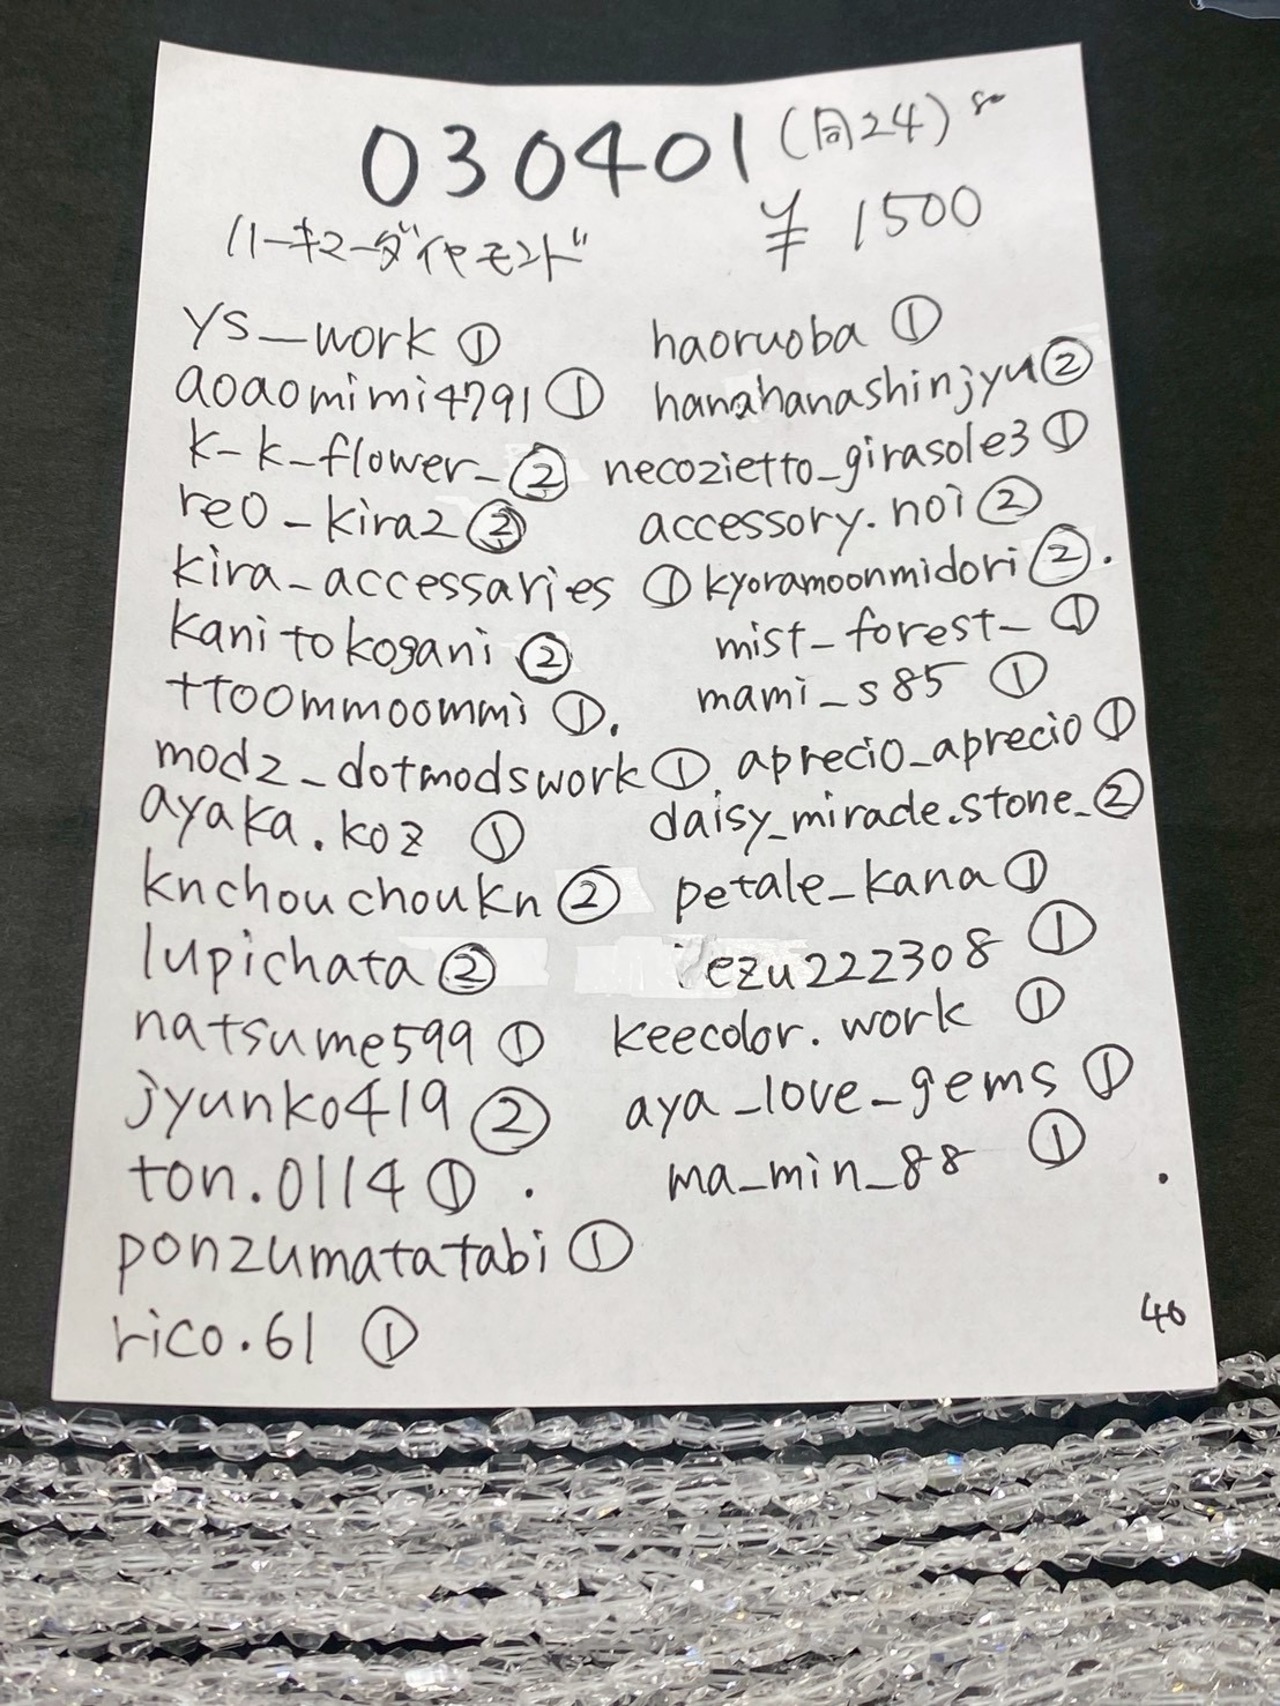 030401 (同24)
ハーキマーダイヤモンド ¥1500
ys_work ①
aoaomimi4791 ①
k-k-flower_ ②
re0_kira2 ②
kira_accessaries ①
kanitokogani ②
ttoommoommi ①.
modz_dotmodswork ①
ayaka.koz ①
knchouchoukn ②
lupichata ②
natsume599 ①
jyunko419 ②
ton.0114 ① .
ponzumatatabi ①
rico.61 ①
haoruoba ①
hanahanashinjyu ②
necozietto_girasole3 ①
accessory.noi ②
kyoramoonmidori ② .
mist_forest_ ①
mami_s85 ①
aprecio_aprecio ①
daisy_miracle.stone_ ②
petale_kana ①
ezu222308 ①
keecolor.work ①
aya_love_gems ①
ma_min_88 ①
40